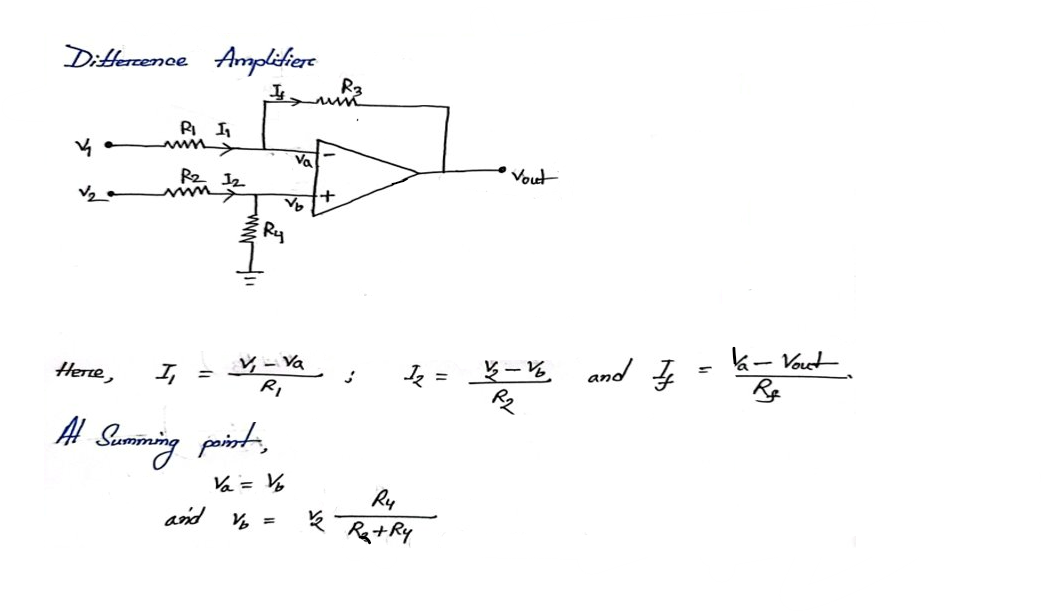 Difference Amplifier
If R3
R1 I1
V1 Va −
R2 I2 Vout
V2 Vb +
R4
Here, I1 = (V1 − Va) / R1 ; I2 = (V2 − Vb) / R2 and If = (Va − Vout) / Rf.
At Summing point,
Va = Vb
and Vb = V2 R4 / (R2 + R4)